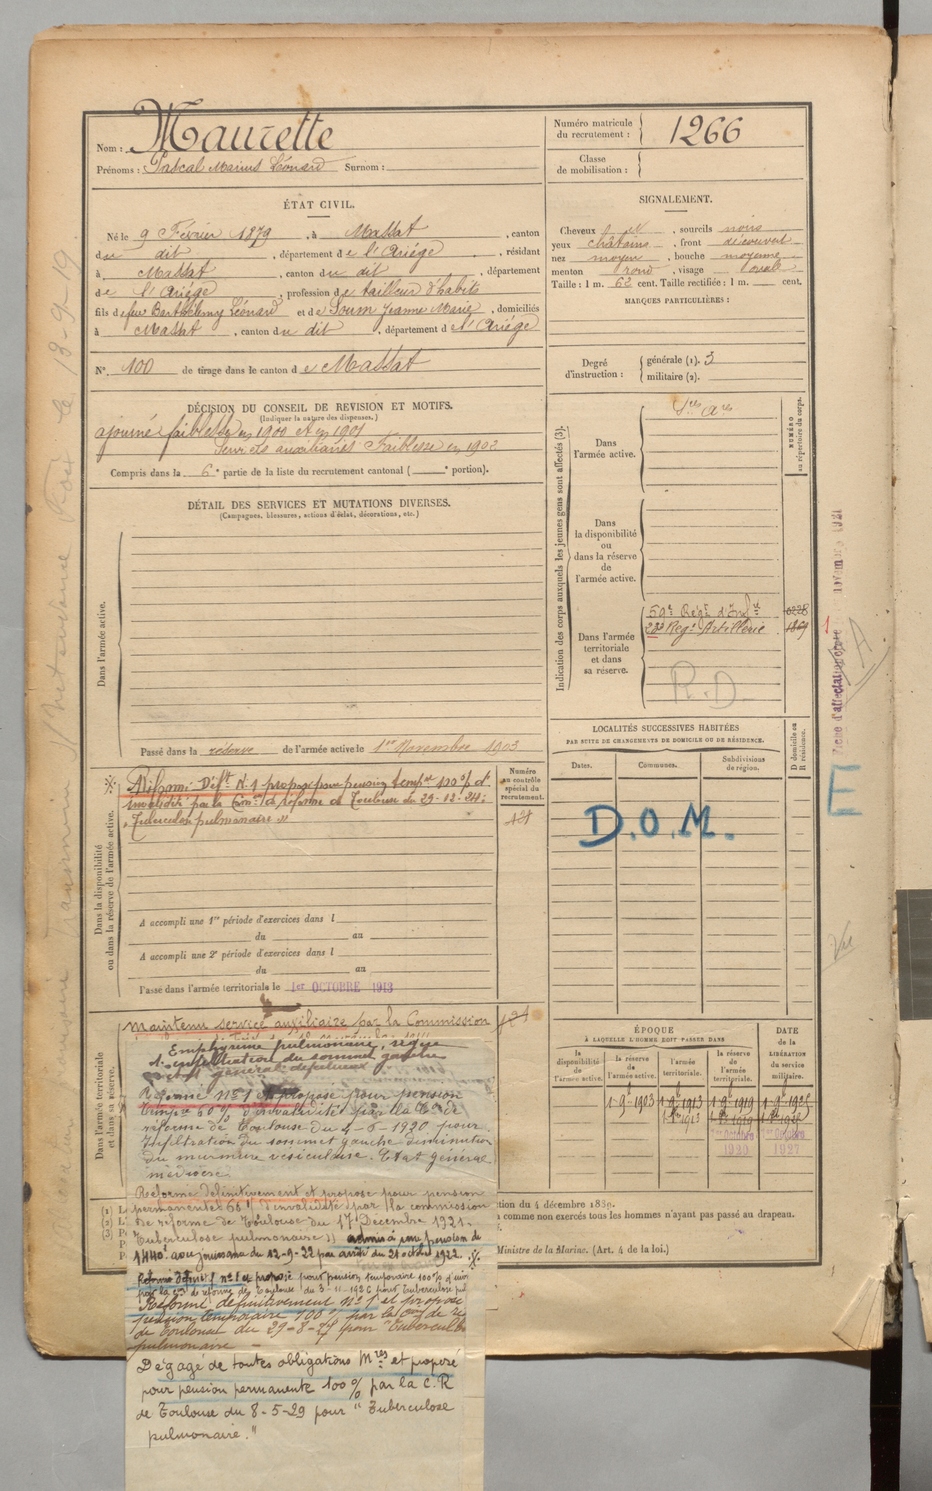 Nom : Maurette
Prénoms : Pascal Marius Léonard Surnom :
Numéro matricule du recrutement : 1266
Classe de mobilisation :
ÉTAT CIVIL.
Né le 9 Février 1879, à Massat, canton
du dit, département de l'Ariége, résidant
à Massat, canton du dit, département
de l'Ariége, profession de tailleur d'habits
fils de feu Barthélemy Léonard et de Soum Jeanne Marie, domiciliés
à Massat, canton du dit, département de l'Ariége
N° 100 de tirage dans le canton de Massat
SIGNALEMENT.
Cheveux et, sourcils noirs
yeux châtains, front découvert
nez moyen, bouche moyenne
menton rond, visage oval
Taille : 1 m. 62 cent. Taille rectifiée : 1 m. cent.
MARQUES PARTICULIÈRES :
Degré d'instruction : générale (1). 3
militaire (2).
DÉCISION DU CONSEIL DE REVISION ET MOTIFS.
(Indiquer la nature des dispenses.)
ajourné faiblesse en 1900 et en 1901
Services auxiliaires Faiblesse en 1902
Compris dans la 6e partie de la liste du recrutement cantonal ( e portion).
DÉTAIL DES SERVICES ET MUTATIONS DIVERSES.
(Campagnes, blessures, actions d'éclat, décorations, etc.)
Dans l'armée active.
Passé dans la réserve de l'armée active le 1er Novembre 1903
Indication des corps auxquels les jeunes gens sont affectés (3).
NUMÉRO au répertoire du corps.
Dans l'armée active.
Dans la disponibilité ou dans la réserve de l'armée active.
Dans l'armée territoriale et dans sa réserve.
59e Régt d'Infie
Regt Artillerie 1869
R.D
Dans la disponibilité ou dans la réserve de l'armée active.
Réformé Déft N°1 proposé pour pension tempre 100% d'
invalidité par la Comon de réforme de Toulouse du 29-12-24:
"Tuberculose pulmonaire"
Numéro au contrôle spécial du recrutement.
A accompli une 1re période d'exercices dans l
du au
A accompli une 2e période d'exercices dans l
du au
Passé dans l'armée territoriale le 1er OCTOBRE 1913
LOCALITÉS SUCCESSIVES HABITÉES
PAR SUITE DE CHANGEMENTS DE DOMICILE OU DE RÉSIDENCE.
Dates. Communes. Subdivisions de région. D domicile ou R résidence.
D.O.M.
E
Dans l'armée territoriale et dans sa réserve.
Maintenu service auxiliaire par la Commission
Emphysème pulmonaire, légère
infiltration du sommet gauche
général défectueux
Réformé n°1 proposé pour pension
tempre 60% d'invalidité par la Con de
réforme de Toulouse du 4-6-1920 pour
Infiltration du sommet gauche diminution
du murmure vésiculaire. Etat général
médiocre
Réformé définitivement et proposé pour pension
permanente 65% d'invalidité par la commission
de réforme de Toulouse du 17 Décembre 1921.
Tuberculose pulmonaire)) admis à une pension de
1440f avec jouissance du 12-9-22 par arrêté du 21 octobre 1922.
Réformé défint n°1 et proposé pour pension temporaire 100% d'inv
par la Con de réforme de Toulouse du 3-11-1926 pour tuberculose pul
Réformé définitivement n°1 et proposé
pension temporaire 100% par la Con de
de Toulouse du 29-8-27 pour "Tuberculose
pulmonaire
Dégagé de toutes obligations Mres et proposé
pour pension permanente 100% par la C.R
de Toulouse du 8-5-29 pour "Tuberculose
pulmonaire."
ÉPOQUE
À LAQUELLE L'HOMME DOIT PASSER DANS
DATE DE LA LIBÉRATION DU SERVICE MILITAIRE.
la disponibilité de l'armée active. la réserve de l'armée active. l'armée territoriale. la réserve de l'armée territoriale.
tion du 4 décembre 1889.
comme non exercés tous les hommes n'ayant pas passé au drapeau.
Ministre de la Marine. (Art. 4 de la loi.)